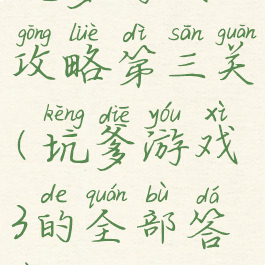 gōng lüè dì sān guān
攻略第三关
kēng diē yóu xì
(坑爹游戏
de quán bù dá
3的全部答